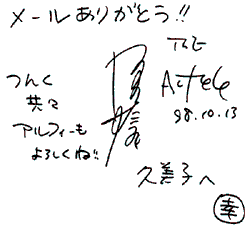 メールありがとう!!
つんく
共々
アルフィーも
よろしくね!!
THE
Alfee
98.10.13
久美子へ
幸